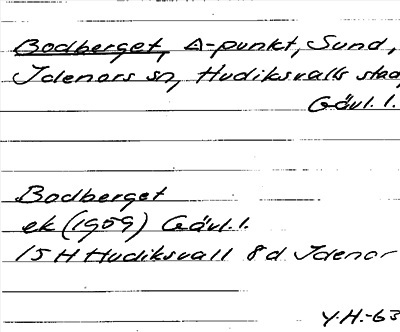 Bodberget, △-punkt, Sund,
Idenors sn, Hudiksvalls stad,
Gävl. l.
Bodberget
ek (1959) Gävl. l.
15 H Hudiksvall 8 d Idenor
Y.H.-63